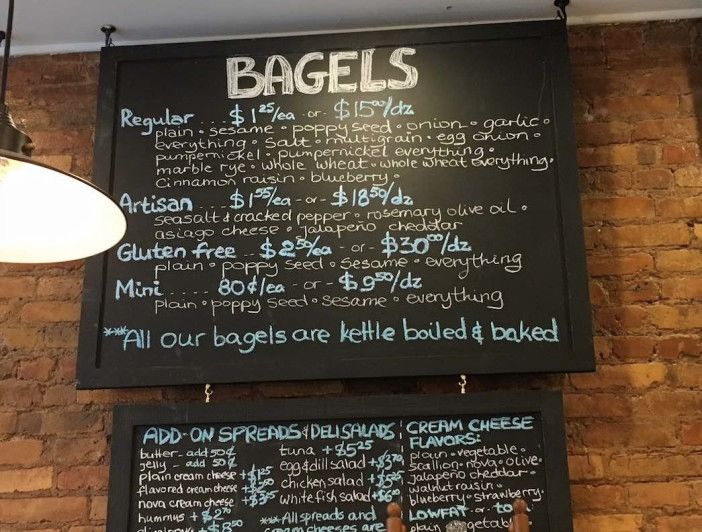 BAGELS
Regular ... $1 25/ea - or - $15 00/dz
plain • sesame • poppyseed • onion • garlic •
everything • salt • multigrain • egg onion •
pumpernickel • pumpernickel everything •
marble rye • whole wheat • whole wheat everything •
cinnamon raisin • blueberry •
Artisan ..... $1 55/ea - or - $18 50/dz
seasalt & cracked pepper • rosemary olive oil •
asiago cheese • jalapeño cheddar
Gluten free .. $2 50/ea - or - $30 00/dz
plain • poppy seed • sesame • everything
Mini ..... 80¢/ea - or - $9 50/dz
plain • poppy seed • sesame • everything
***All our bagels are kettle boiled & baked
ADD-ON SPREADS & DELI SALADS
butter - add 50¢
jelly - add 50¢
plain cream cheese + $1 25
flavored cream cheese
nova cream cheese
hummus + $2
tuna + $5 25
egg & dill salad + $3
chicken salad + $5 25
white fish salad + $6
*** All spreads and
cream cheeses are
CREAM CHEESE
FLAVORS:
plain • vegetable •
scallion • nova • olive •
jalapeño cheddar •
walnut raisin •
blueberry • strawberry
LOWFAT - or - to
plain